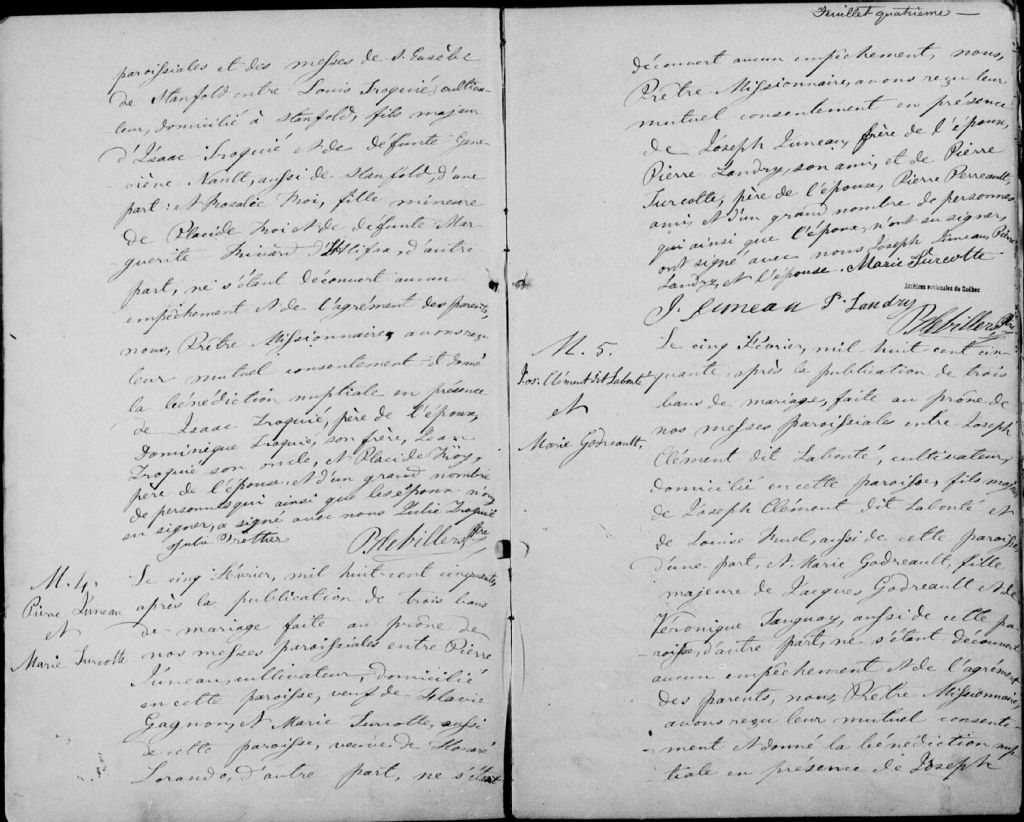 paroissiales et des messes de S. Eusèbe
de Stanfold entre Louis Iroquié cultiva-
teur, domicilié à Stanfold, fils majeur
d'Isaac Iroquié et de défunte Gene-
viève Nault, aussi de Stanfold, d'une
part; et Rosalie Troi, fille mineure
de Placide Troi et de défunte Mar-
guerite Rivard d'Halifax, d'autre
part, ne s'étant découvert aucun
empêchement et de l'agrément des parents,
nous, Prêtre Missionnaire, avons reçu
leur mutuel consentement et donné
la bénédiction nuptiale en présence
de Isaac Iroquié, père de l'époux,
Dominique Iroquié, son frère, Jean
Iroquié son oncle, et Placide Troy,
père de l'épouse, et d'un grand nombre
de personnes qui ainsi que les époux n'ont
su signer, a signé avec nous Julie Iroquié
Julie
P. deVillers Ptre
M. 4.
Pierre Juneau
et
Marie Turcotte
Le cinq Février, mil huit cent cinquante,
après la publication de trois bans
de mariage faite au prône de
nos messes paroissiales entre Pierre
Juneau, cultivateur, domicilié
en cette paroisse, veuf de Flavie
Gagnon, et Marie Turcotte, aussi
de cette paroisse, veuve de Honoré
d'autre part, ne s'étant
Feuillet quatrième —
découvert aucun empêchement, nous,
Prêtre Missionnaire, avons reçu leur
mutuel consentement en présence
de Joseph Juneau, frère de l'époux,
Pierre Landry, son ami, et de Pierre
Turcotte, père de l'épouse, Pierre Perreault,
ami, et d'un grand nombre de personnes
qui ainsi que l'époux, n'ont su signer,
ont signé avec nous Joseph Juneau, Pierre
Landry, et l'épouse. Marie Turcotte
Archives nationales du Québec
J. Juneau P. Landry
P. deVillers Ptre
M. 5.
Jos. Clément dit Labonté
et
Marie Godreault.
Le cinq Février, mil huit cent cin-
quante, après la publication de trois
bans de mariage, faite au prône de
nos messes paroissiales entre Joseph
Clément dit Labonté, cultivateur,
domicilié en cette paroisse, fils majeur
de Joseph Clément dit Labonté et
de Louise Ruel, aussi de cette paroisse
d'une part, et Marie Godreault, fille
majeure de Jacques Godreault et de
Véronique Tanguay, aussi de cette pa-
roisse, d'autre part, ne s'étant découvert
aucun empêchement et de l'agrément
des parents, nous, Prêtre Missionnaire,
avons reçu leur mutuel consente-
ment et donné la bénédiction nup-
tiale en présence de Joseph